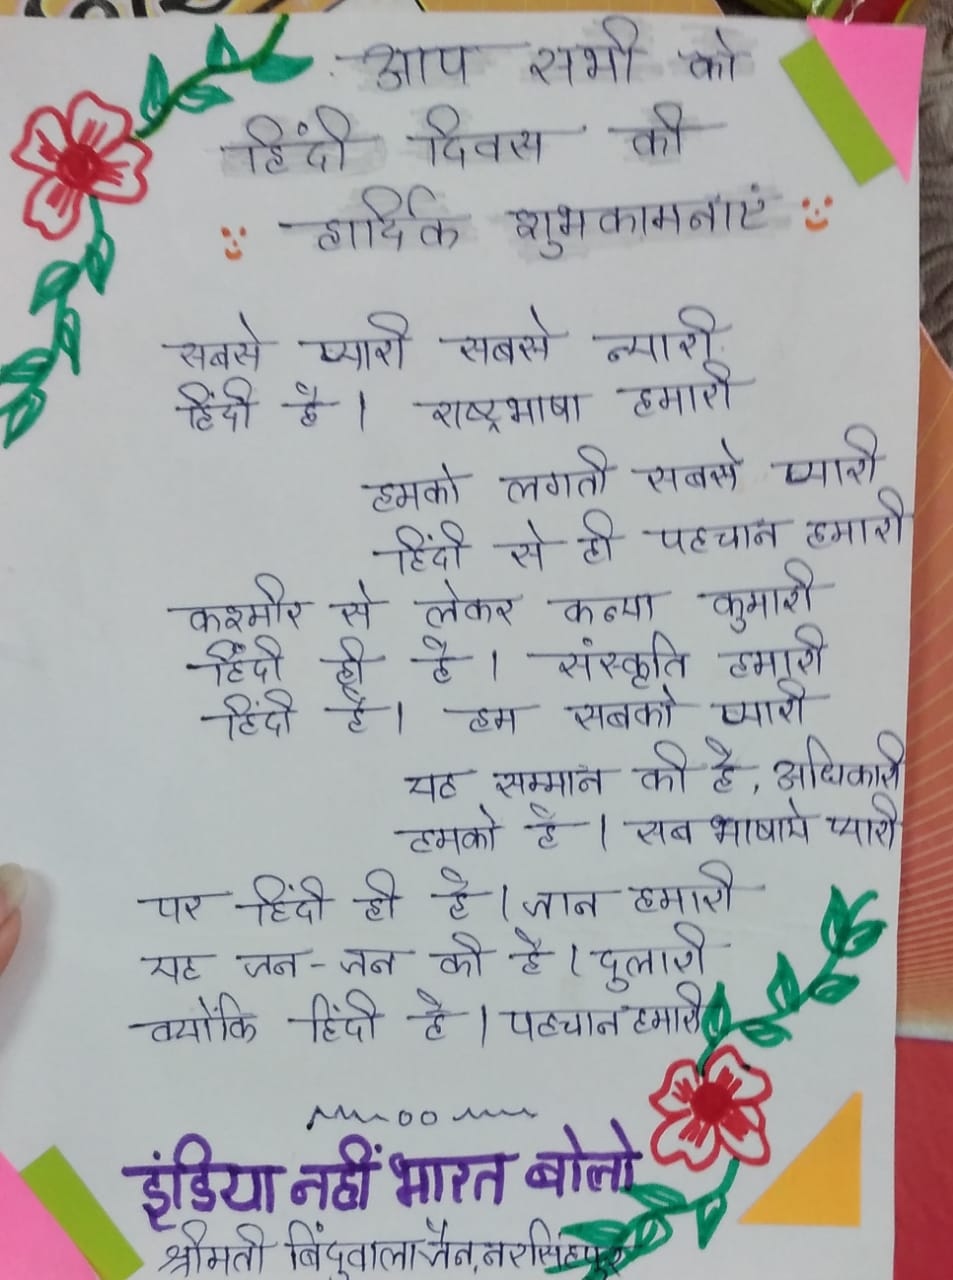 आप सभी को
हिंदी दिवस की
हार्दिक शुभकामनाएं
सबसे प्यारी सबसे न्यारी
हिंदी है। राष्ट्रभाषा हमारी
हमको लगती सबसे प्यारी
हिंदी से ही पहचान हमारी
कश्मीर से लेकर कन्या कुमारी
हिंदी ही है। संस्कृति हमारी
हिंदी है। हम सबको प्यारी
यह सम्मान की है, अधिकारी
हमको है। सब भाषाये प्यारी
पर हिंदी ही है। जान हमारी
यह जन-जन की है। दुलारी
क्योंकि हिंदी है। पहचान हमारी
इंडिया नहीं भारत बोलो
श्रीमती बिंदुवाला जैन, नरसिंहपुर